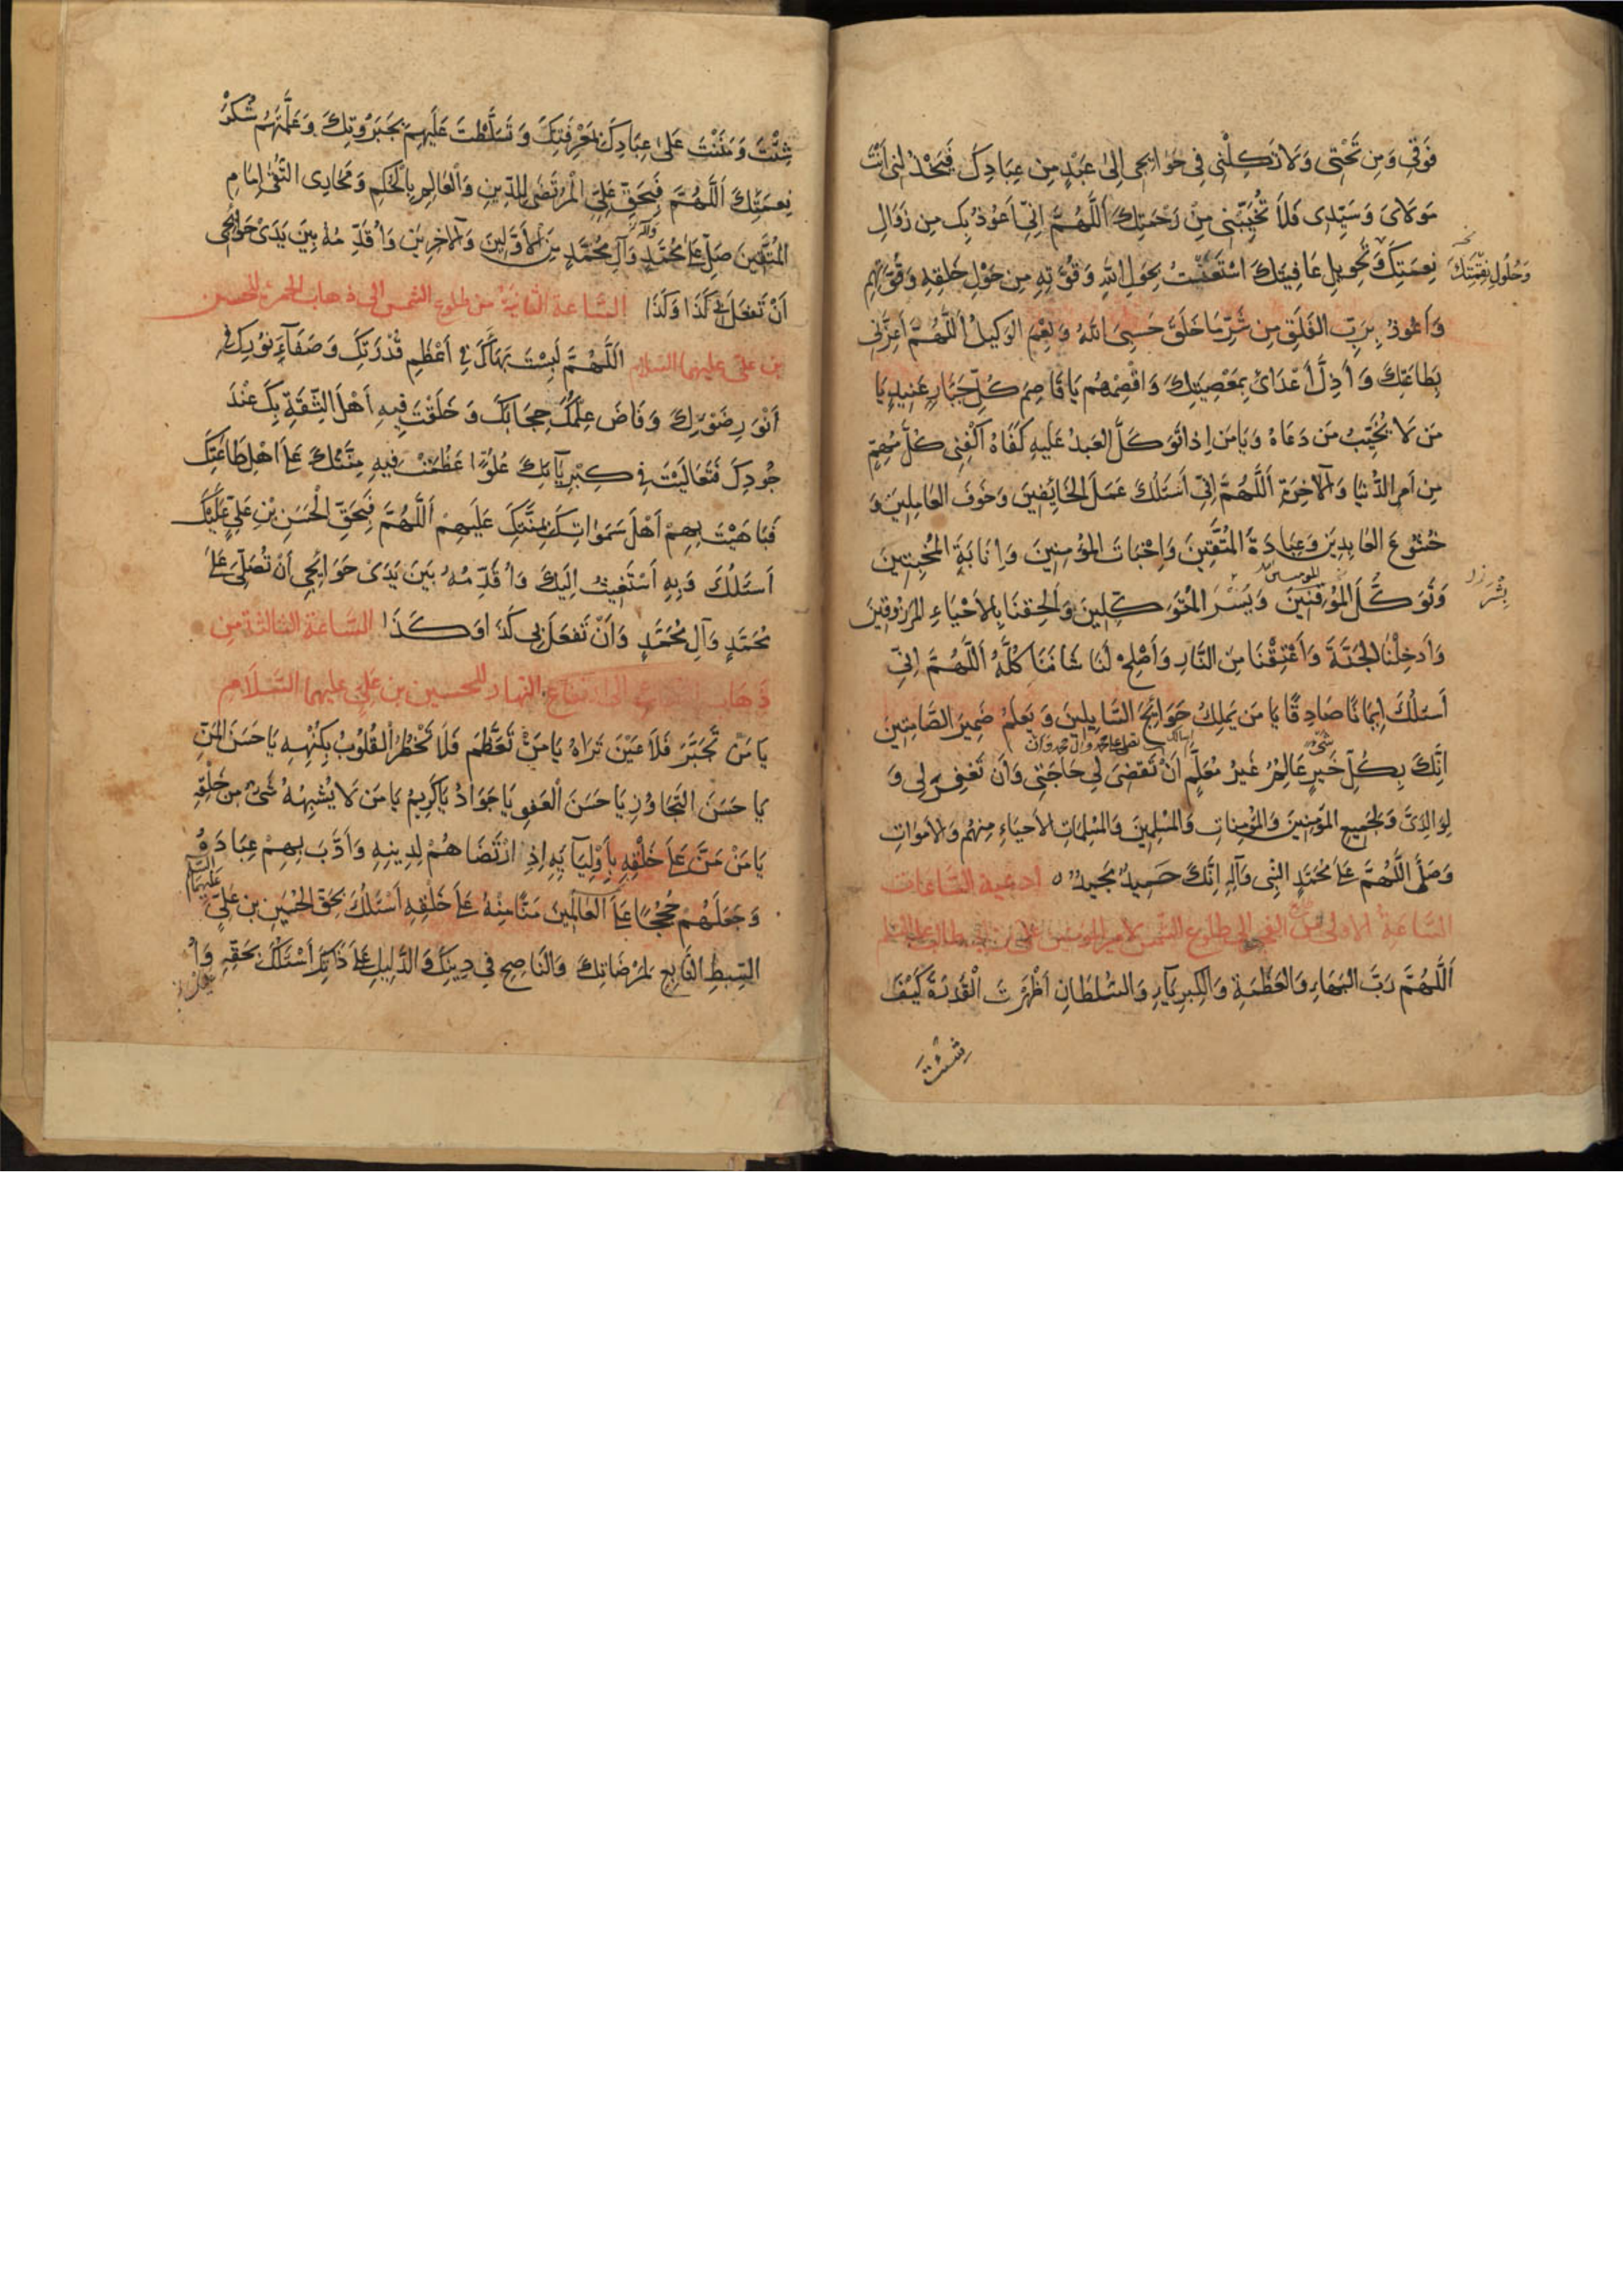 فَوْقِي وَمِنْ تَحْتِي وَلَا تَكِلْنِي فِي حَوَايِجِي إِلَىٰ عَبْدٍ مِنْ عِبَادِكَ فَيَخْذُلَنِي أَنْتَ
مَوْلَايَ وَسَيِّدِي فَلَا تُخَيِّبْنِي مِنْ رَحْمَتِكَ اَللَّهُمَّ اِنِّي اَعُوذُ بِكَ مِنْ زَوَالِ
نِعْمَتِكَ وَتَحْوِيلِ عَافِيَتِكَ اسْتَعَنْتُ بِحَوْلِ اللهِ وَقُوَّتِهِ مِنْ حَوْلِ خَلْقِهِ وَقُوَّتِهِمْ
وَحُلُولِ نِقْمَتِكَ
وَأَعُوذُ بِرَبِّ الفَلَقِ مِنْ شَرِّ مَا خَلَقَ حَسْبِيَ اللهُ وَنِعْمَ الوَكِيلُ اَللَّهُمَّ أَعِزَّنِي
بِطَاعَتِكَ وَأَذِلَّ أَعْدَائِي بِمَعْصِيَتِكَ وَاقْصِمْهُمْ يَا قَاصِمَ كُلِّ جَبَّارٍ عَنِيدٍ يَا
مَنْ لَا يُخَيِّبُ مَنْ دَعَاهُ وَيَا مَنْ اِذَا تَوَكَّلَ العَبْدُ عَلَيْهِ كَفَاهُ اكْفِنِي كُلَّ مُهِمٍّ
مِنْ اَمْرِ الدُّنْيَا وَالْآخِرَةِ اَللَّهُمَّ اِنِّي أَسْئَلُكَ عَمَلَ الْخَايِفِينَ وَخَوْفَ العَامِلِينَ وَ
خُشُوعَ العَابِدِينَ وَعِبَادَةَ الْمُتَّقِينَ وَاِخْبَاتَ الْمُؤْمِنِينَ وَاِنَابَةَ الْمُخْبِتِينَ
وَتَوَكُّلَ الْمُوقِنِينَ وَيُسْرَ الْمُتَوَكِّلِينَ وَأَلْحِقْنَا بِالْأَحْيَاءِ الْمَرْزُوقِينَ
وَأَدْخِلْنَا الْجَنَّةَ وَأَعْتِقْنَا مِنَ النَّارِ وَأَصْلِحْ لَنَا شَأْنَنَا كُلَّهُ اَللَّهُمَّ اِنِّي
أَسْئَلُكَ اِيمَانًا صَادِقًا يَا مَنْ يَمْلِكُ حَوَايِجَ السَّايِلِينَ وَيَعْلَمُ ضَمِيرَ الصَّامِتِينَ
اِنَّكَ بِكُلِّ خَيْرٍ عَالِمٌ غَيْرُ مُعَلَّمٍ أَنْ تَقْضِيَ لِي حَاجَتِي وَأَنْ تَغْفِرَ لِي وَ
لِوَالِدَيَّ وَلِجَمِيعِ الْمُؤْمِنِينَ وَالْمُؤْمِنَاتِ وَالْمُسْلِمِينَ وَالْمُسْلِمَاتِ الْأَحْيَاءِ مِنْهُمْ وَالْأَمْوَاتِ
وَصَلَّى اللَّهُمَّ عَلَى مُحَمَّدٍ النَّبِي وَآلِهِ اِنَّكَ حَمِيدٌ مَجِيدٌ ه ادعية السَّاعات
السَّاعة الاولى من طلوع الفجر الى طلوع الشمس لامير المؤمنين علي بن ابي طالب عليه السلم
اَللَّهُمَّ رَبَّ الْبَهَاءِ وَالعَظَمَةِ وَالْكِبْرِيَآءِ وَالسُّلْطَانِ أَظْهَرْتَ الْقُدْرَةَ كَيْفَ
شِئْتَ
شِئْتَ وَمَنَنْتَ عَلَىٰ عِبَادِكَ بِمَعْرِفَتِكَ وَتَسَلَّطْتَ عَلَيْهِمْ بِجَبَرُوتِكَ وَعَلَّمْتَهُمْ شُكْرَ
نِعْمَتِكَ اَللَّهُمَّ فَبِحَقِّ عَلِيٍّ الْمُرْتَضَى لِلدِّينِ وَالْعَالِمِ بِالْحُكْمِ وَمَجَارِى التُّقَى إِمَامِ
الْمُتَّقِينَ صَلِّ عَلَى مُحَمَّدٍ وَآلِ مُحَمَّدٍ فِي الْأَوَّلِينَ وَالْآخِرِينَ وَأُقَدِّمُهُ بَيْنَ يَدَيْ حَوَائِجِي
أَنْ تَفْعَلَ بِي كَذَا وَكَذَا السَّاعة الثانية من طلوع الشمس الى ذهاب الحمرة للحسن
بن علي عليهما السلام اَللَّهُمَّ لَبِسْتَ بَهَاكَ فِي أَعْظَمِ قُدْرَتِكَ وَصَفَآءِ نُورِكَ فِي
أَنْوَرِ ضَوْءِكَ وَفَاضَ عِلْمُكَ حِجَابَكَ وَخَلَقْتَ فِيهِ أَهْلَ الثِّقَةِ بِكَ عِنْدَ
جُودِكَ فَتَعَالَيْتَ فِي كِبْرِيَآئِكَ عُلُوًّا عَظُمَتْ فِيهِ مِنَّتُكَ عَلَى اَهْلِ طَاعَتِكَ
فَبَاهَيْتَ بِهِمْ أَهْلَ سَمَوَاتِكَ بِمَنَّتِكَ عَلَيْهِمْ اَللَّهُمَّ فَبِحَقِّ الْحَسَنِ بْنِ عَلِيٍّ عَلَيْكَ
اَسْئَلُكَ وَبِهِ اَسْتَغِيثُ اِلَيْكَ وَأُقَدِّمُهُ بَيْنَ يَدَيْ حَوَايِجِي أَنْ تُصَلِّيَ عَلَى
مُحَمَّدٍ وَآلِ مُحَمَّدٍ وَأَنْ تَفْعَلَ بِي كَذَا وَكَذَا السَّاعَة الثالثة مِن
ذَهاب الشعاع الى ارتفاع النهار للحسين بن علي عليهما السَّلَام
يَا مَنْ تَجَبَّرَ فَلَا عَيْنَ تَرَاهُ يَا مَنْ تَعَظَّمَ فَلَا تَخْطُرُ الْقُلُوبُ بِكُنْهِهِ يَا حَسَنَ الْمَنِّ
يَا حَسَنَ التَّجَاوُزِ يَا حَسَنَ الْعَفْوِ يَا جَوَادُ يَا كَرِيمُ يَا مَنْ لَا يُشْبِهُهُ شَيْءٌ مِنْ خَلْقِهِ
يَا مَنْ مَنَّ عَلَى خَلْقِهِ بِأَوْلِيَآئِهِ اِذِ ارْتَضَاهُمْ لِدِينِهِ وَأَدَّبَ بِهِمْ عِبَادَهُ
وَجَعَلَهُمْ حُجَجًا عَلَى الْعَالَمِينَ مَنًّا مِنْهُ عَلَى خَلْقِهِ أَسْئَلُكَ بِحَقِّ الْحُسَيْنِ بْنِ عَلِيٍّ
عَلَيْهِمَا السَّلم
السِّبْطِ التَّابِعِ لِمَرْضَاتِكَ وَالنَّاصِحِ فِي دِينِكَ وَالدَّلِيلِ عَلَى ذَاتِكَ أَسْئَلُكَ بِحَقِّهِ وَأُ